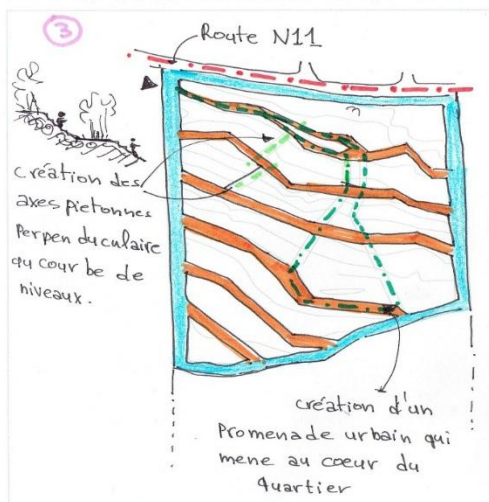 3
Route N11
création des
axes pietonnes
Perpenduculaire
qu courbe de
niveaux.
création d'un
Promenade urbain qui
mene au coeur du
quartier